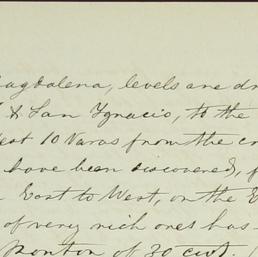 agdalena, levels are dr
& San Ygnacio, to the
est 10 Varas from the c
have been discovered, f
East to West, on the E
of very rich ones has
ponton of 30 cwt.